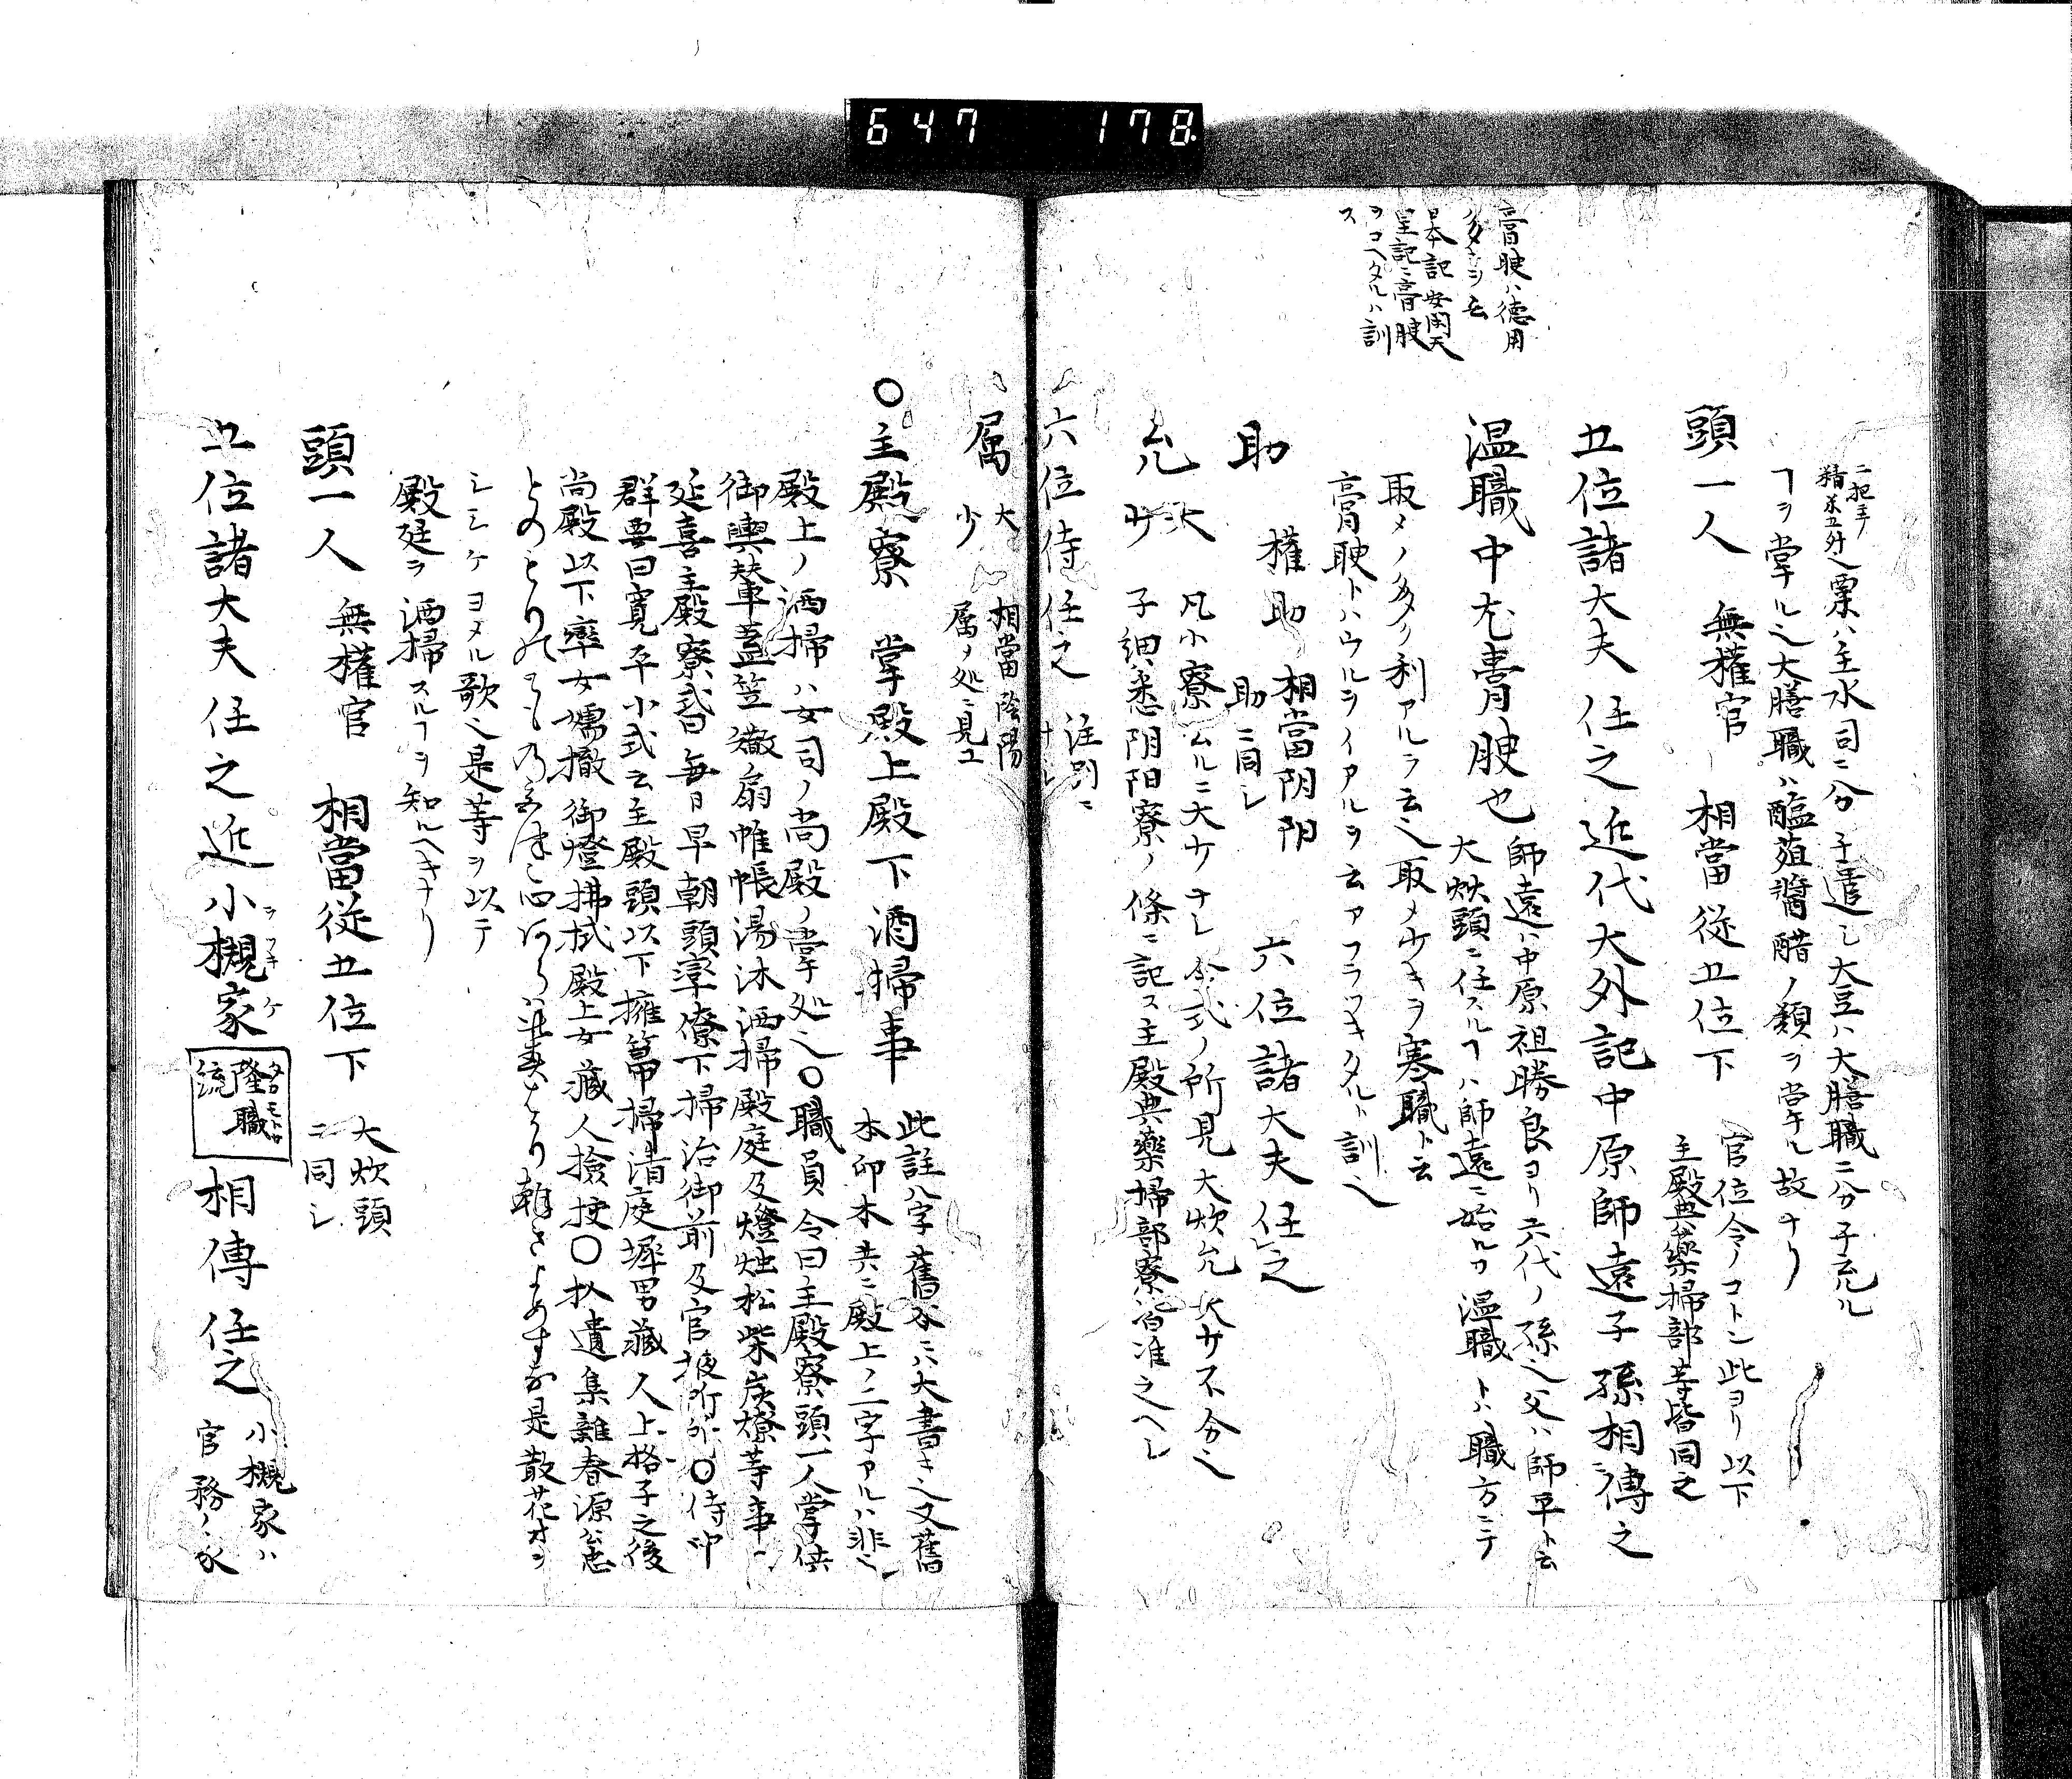 647 178
膏腴ハ徳用
ノ多キヲ云
日本記安閑天
皇記ニ膏腴
ヲコヘタルハ訓
ス
精米五升也粟ハ主水司ニ分チ遣シ大豆ハ大膳職ニ分チ充ル
ヿヲ掌ル也大膳職ハ醢葅醬醋ノ類ヲ掌ル故ナリ
頭一人 無權官 相當従五位下
官位令ノコトシ此ヨリ以下
主殿典藥掃部寺皆同之
五位諸大夫任之近代大外記中原師遠子孫相傳之
温職中尤膏腴也
師遠ハ中原祖勝良ヨリ六代ノ孫也父ハ師平ト云
大炊頭ニ任スルヿハ師遠ニ始ルカ温職トハ職方ニテ
取メノ多ク利アルヲ云也取メ少キヲ寒職ト云
膏腴トハウルヲイアルヲ云アフラツキタルト訓ス
助 權助 相當阴阳
助ニ同シ
六位諸大夫任之
允 大 少
凡小寮ムルニ大少ナシ令式ノ所見大炊允大少不分也
子細悉阴阳寮ノ條ニ記ス主殿典藥掃部寮皆准之ヘシ
六位侍任之 注別ニナシ
属 大 少
相當陰陽
属ノ処ニ見ユ
○主殿寮 掌殿上殿下洒掃事
此註八字舊本ニハ大書キ也又舊
本印本共ニ殿上ノ二字アルハ非也
殿上ノ洒掃ハ女司ノ尚殿ノ掌処也○職員令曰主殿寮頭一人掌供
御輿輦車蓋笠繖扇帷帳湯沐洒掃殿庭及燈燭松柴炭燎等事
延喜主殿寮式曰毎日早朝頭率僚下掃治御前及官掖所々○侍中
群要曰寛平小式云主殿頭以下擁箒掃清庭墀男藏人上格子之後
尚殿以下率女孺撤御燈拂拭殿上女藏人撿挍○拾遺集雜春源公忠
とのもりのとものみやつこ心あらは此春はかり朝きよめすな是散花ヲ
シミケヨメル歌也是等ヲ以テ
殿廷ヲ洒掃スルヿヲ知ルヘキナリ
頭一人 無權官 相當従五位下
大炊頭
ニ同シ
五位諸大夫任之近小槻家 隆職流 相傳任之
小槻家ハ
官務ノ家